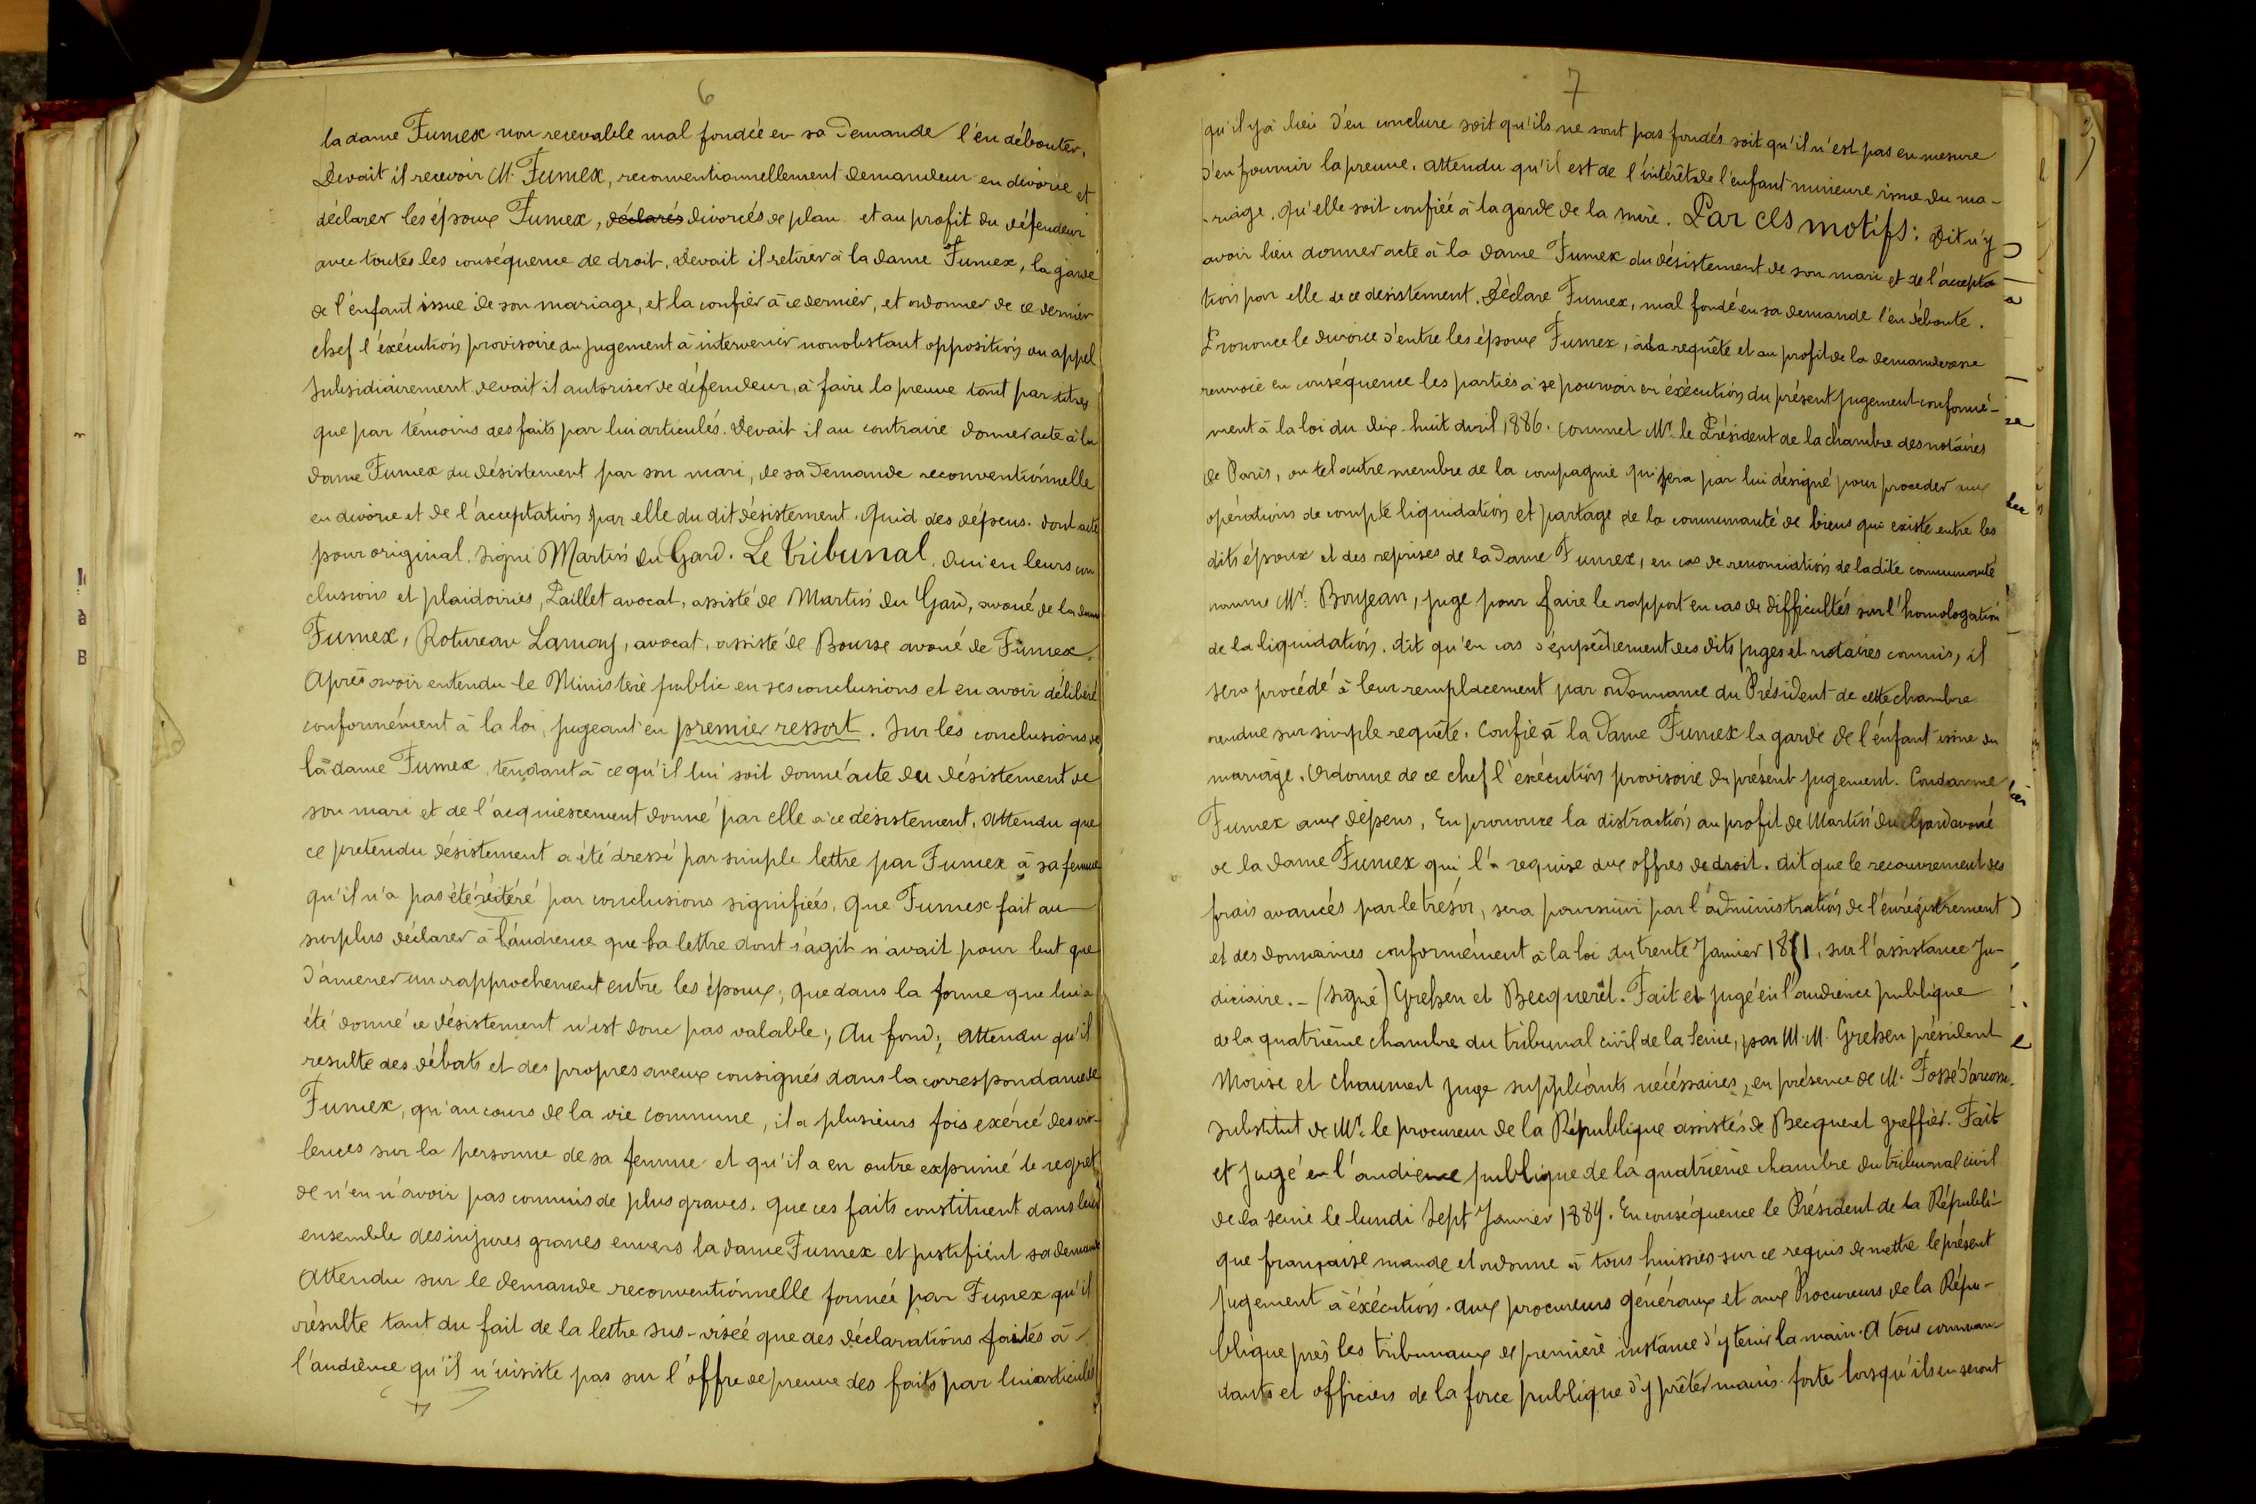 6
la dame Fumex non recevable mal fondée en sa demande l'en débouter,
Devait il recevoir M. Fumex, reconventionnellement demandeur en divorce et
déclarer les époux Fumex, déclarés divorcés de plan et au profit du défendeur
avec toutes les conséquence de droit, devait il retirer à la dame Fumex, la garde
de l'enfant issue de son mariage, et la confier à ce dernier, et ordonner de ce dernier
chef l'éxécution provisoire du jugement à intervenir nonobstant opposition ou appel
subsidiairement devait il autoriser de défendeur, à faire la preuve tant par titres
que par témoins des faits par lui articulés. Devait il au contraire donner acte à la
dame Fumex du désistement par son mari, de sa demande reconventionnelle
en divorce et de l'acceptation par elle du dit désistement. Quid des dépens. dont acte
pour original. signé Martin du Gard. Le tribunal, Oui en leurs con
clusions et plaidoiries, Paillet avocat, assisté de Martin du Gard, avoué de la dame
Fumex, Rotureau Launay, avocat, assisté de Bourse avoué de Fumex.
Après avoir entendu le Ministère public en ses conclusions et en avoir délibéré
conformément à la loi, jugeant en premier ressort. Sur les conclusions de
la dame Fumex, tendant à ce qu'il lui soit donné acte du désistement de
son mari et de l'acquiescement donné par elle à ce désistement. Attendu que
ce pretendu désistement a été dressé par simple lettre par Fumex à sa femme
qu'il n'a pas été réitéré par conclusions signifiées, que Fumex fait au
surplus déclarer à l'audience que sa lettre dont s'agit n'avait pour but que
d'amener un rapprochement entre les époux; que dans la forme que lui a
été donné ce désistement n'est donc pas valable; Au fond; Attendu qu'il
resulte des débats et des propres aveux consignés dans la correspondance de
Fumex, qu'au cours de la vie commune, il a plusieurs fois exércé des vio-
lences sur la personne de sa femme et qu'il a en outre exprimé le regret
de n'en n'avoir pas commis de plus graves. que ces faits constituent dans leur
ensemble des injures graves envers la dame Fumex et justifient sa demande
Attendu sur le demande reconventionnelle formée par Fumex qu'il
résulte tant du fait de la lettre sus-visée que des déclarations faites à
l'audience qu'il n'insiste pas sur l'offre de preuve des faits par lui articulés
7
qu'il y a lieu d'en conclure soit qu'ils ne sont pas fondés soit qu'il n'est pas en mesure
d'en fournir la preuve. attendu qu'il est de l'intérêt de l'enfant mineure issue du ma-
-riage, qu'elle soit confiée à la garde de la mère. Par ces motifs: Dit n'y
avoir lieu donner acte à la dame Fumex du désistement de son mari et de l'accepta
tion par elle de ce desistement. Déclare Fumex, mal fondé en sa demande l'en déboute.
Prononce le divorce d'entre les époux Fumex, à la requête et au profit de la demanderesse
renvoie en conséquence les parties à se pourvoir en éxécution du présent jugement conformé-
ment à la loi du dix-huit avril 1886. commet Mr. le Président de la chambre des notaires
de Paris, ou tel autre membre de la compagnie qui sera par lui désigné pour proceder aux
opérations de compte liquidation et partage de la communauté de biens qui existe entre les
dits époux et des reprises de la dame Fumex, en cas de renonciation de ladite communauté
nomme Mr. Bonjean, juge pour faire le rapport en cas de difficultés sur l'homologation
de la liquidation. dit qu'en cas d'empêchement des dits juges et notaires commis, il
sera procédé à leur remplacement par ordonnance du Président de cette chambre
rendue sur simple requête. Confie à la dame Fumex la garde de l'enfant issue du
mariage. Ordonne de ce chef l'exécution provisoire du présent jugement. Condamne
Fumex aux dépens, En prononce la distraction au profit de Martin du Gard avoué
de la dame Fumex qui l'a requise aux offres de droit. dit que le recouvrement des
frais avancés par le trésor, sera poursuivi par l'administration de l'enrégistrement
et des domaines conformément à la loi du trente Janvier 1851, sur l'assistance Ju-
diciaire. - (signé) Grehen et Becquerêt. Fait et jugé en l'audience publique
de la quatrième chambre du tribunal civil de la Seine, par M.M. Grehen président
Moise et Chaumed juge suppléants nécéssaires, en présence de M. Fossé d'arcosse.
substitut de Mr. le procureur de la République assistés de Becqueret greffier. Fait
et jugé en l'audience publique de la quatrième chambre du tribunal civil
de la seine le lundi sept Janvier 1889. En conséquence le Président de la Républi-
que française mande et ordonne à tous huissiers sur ce requis de mettre le présent
jugement à éxécution. aux procureurs généraux et aux Procureurs de la Répu-
blique près les tribunaux de première instance d'y tenir la main. A tous comman
dants et officiers de la force publique d'y prêter main-forte lorsqu'ils en seront